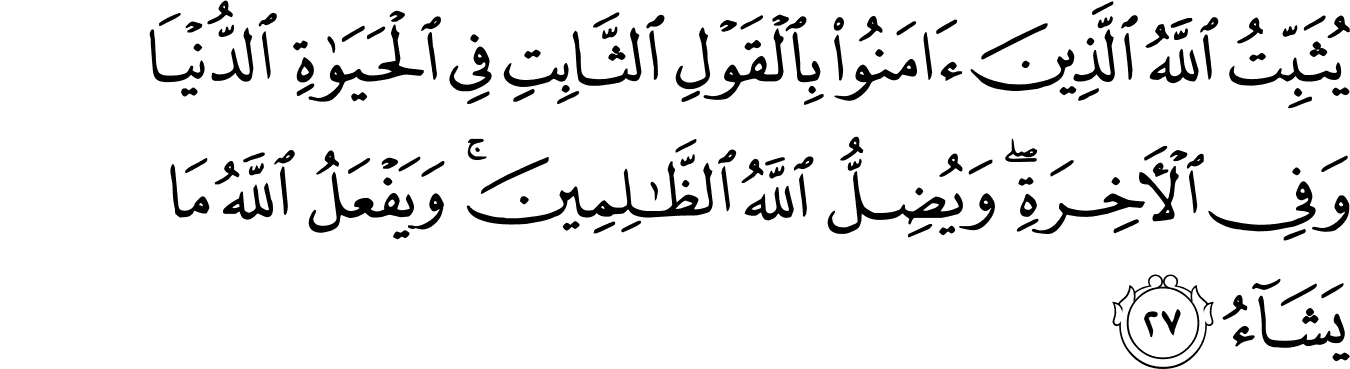 يُثَبِّتُ ٱللَّهُ ٱلَّذِينَ ءَامَنُوا۟ بِٱلْقَوْلِ ٱلثَّابِتِ فِى ٱلْحَيَوٰةِ ٱلدُّنْيَا
وَفِى ٱلْـَٔاخِرَةِ ۖ وَيُضِلُّ ٱللَّهُ ٱلظَّـٰلِمِينَ ۚ وَيَفْعَلُ ٱللَّهُ مَا
يَشَآءُ ٢٧